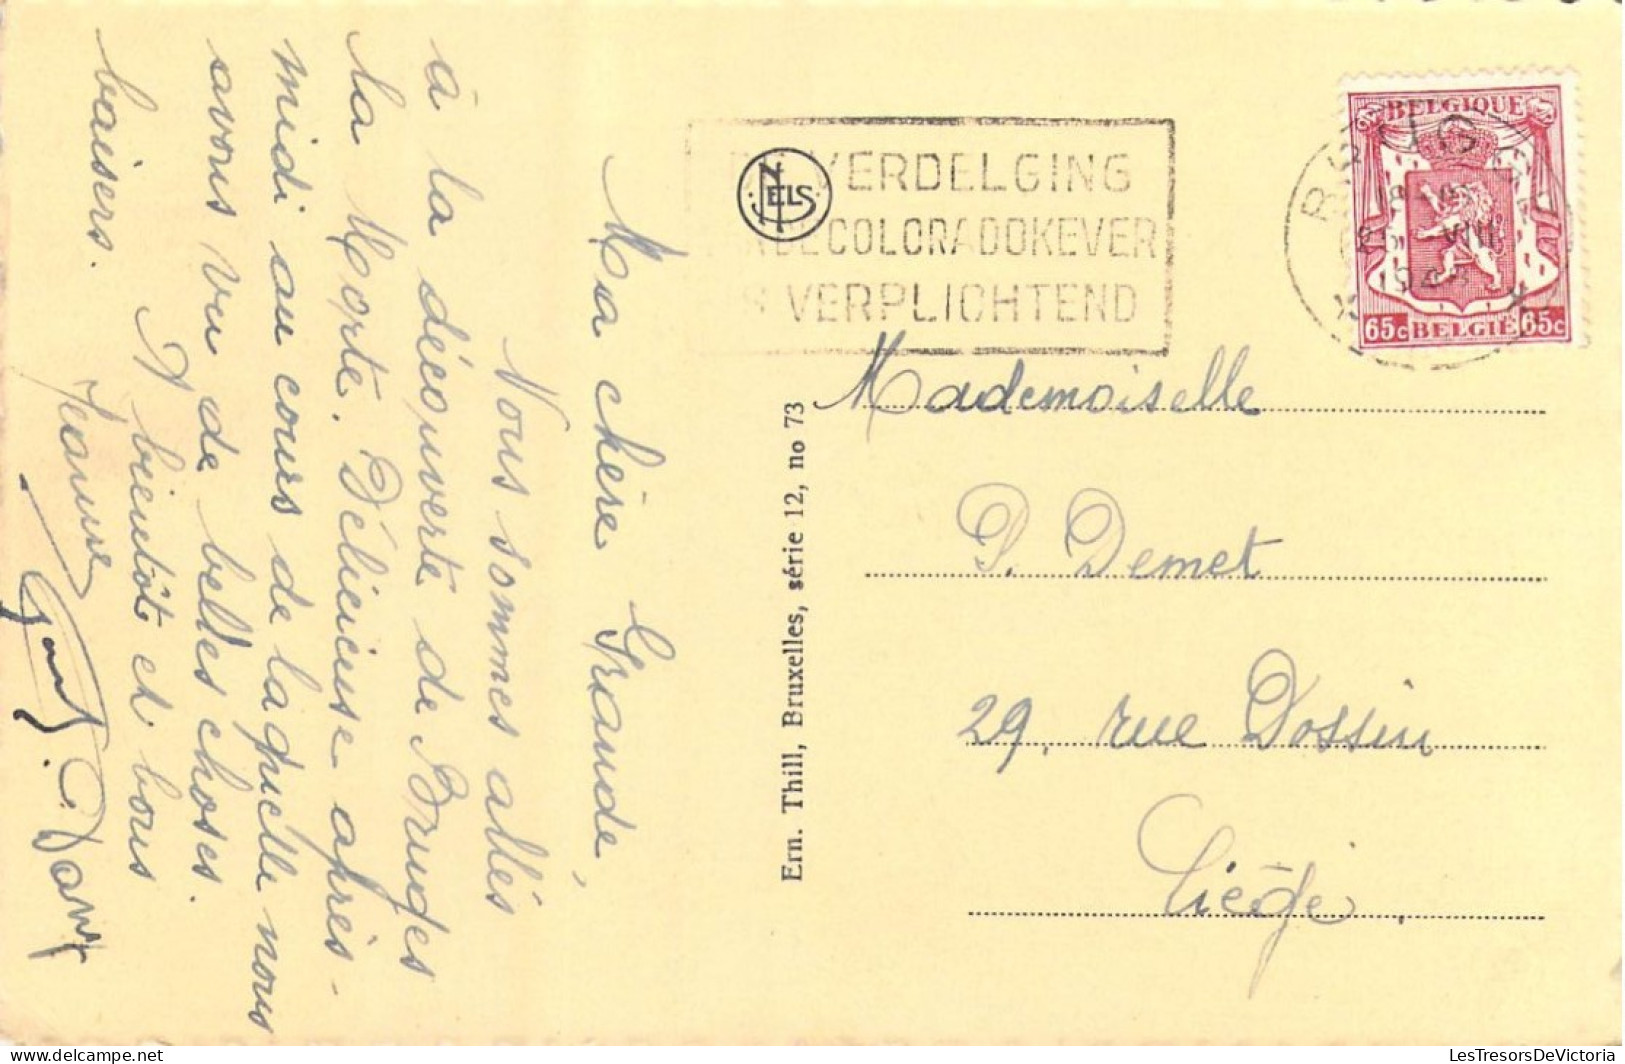 Ma chère Grande,
Nous sommes allés
à la découverte de Bruges
la Morte. Délicieuse après-
midi au cours de laquelle nous
avons vu de belles choses.
A bientôt et bons
baisers.
Jeanne
Ern. Thill, Bruxelles, série 12, no 73
NELS
VERDELGING
COLORADOKEVER
VERPLICHTEND
BELGIQUE
65c BELGIË 65c
Mademoiselle
P. Demet
29, rue Dossin
Liège.
LesTresorsDeVictoria